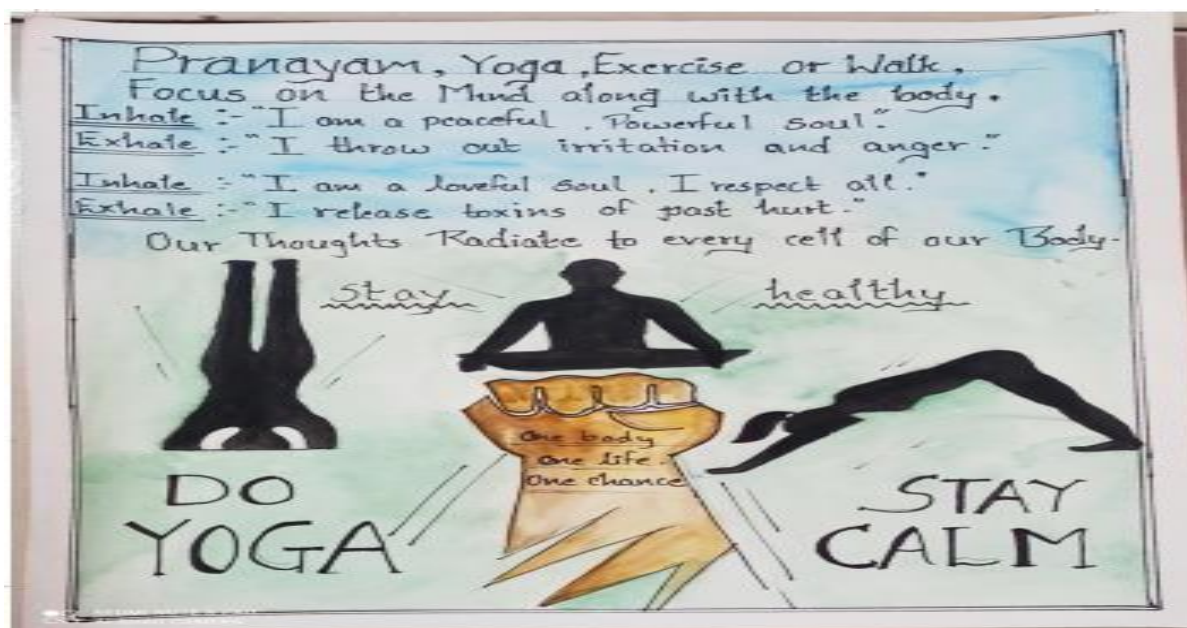 Pranayam, Yoga, Exercise or Walk,
Focus on the Mind along with the body.
Inhale :- "I am a peaceful. Powerful soul."
Exhale :- "I throw out irritation and anger."
Inhale :- "I am a loveful soul. I respect all."
Exhale :- "I release toxins of past hurt."
Our Thoughts Radiate to every cell of our Body.
stay healthy
One body
One life.
One chance
DO
YOGA
STAY
CALM